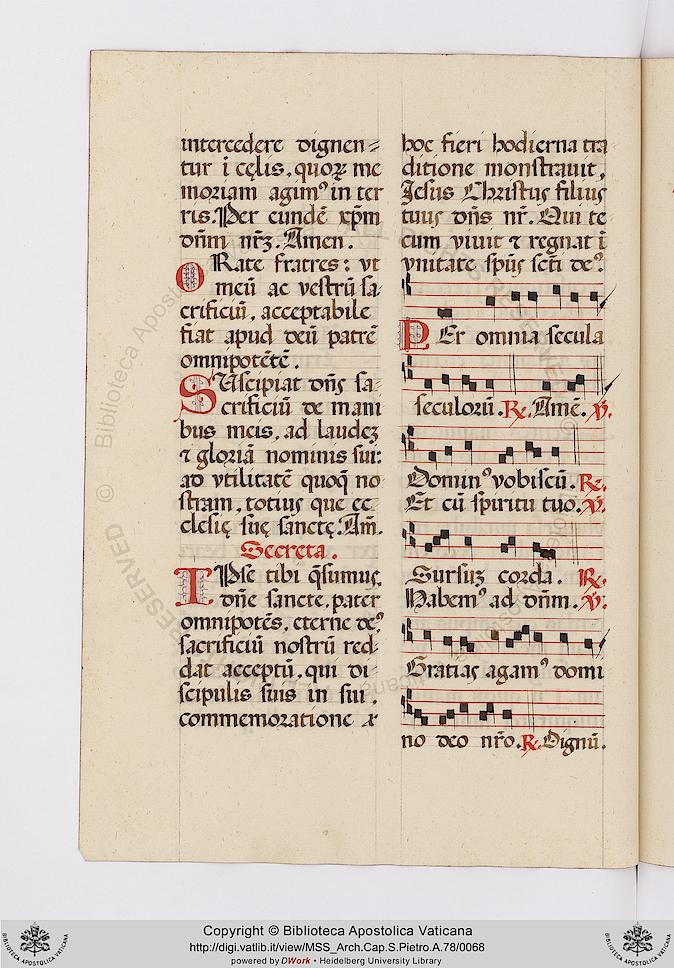 intercedere dignen⸗
tur ī cęlis, quoꝝ me
moriam agimꝰ in ter
ris. Per eundē xp̄m
dn̄m nr̄ꝫ. Amen.
ORate fratres: vt
meū ac vestrū sa⸗
crificiū, acceptabile
fiat apud deū patrē
omnipotētē.
SUscipiat dn̄s sa⸗
crificiū de mani
bus meis, ad laudeꝫ
⁊ gloriā nominis sui:
ad vtilitatē quoq̄ no
stram, totius que ec
clesię suę sanctę. Am̄.
Secreta.
IPse tibi q̄sumus,
dn̄e sancte, pater
omnipotēs, eterne deꝰ
sacrificiū nostrū red⸗
dat acceptū, qui di⸗
scipulis suis in sui,
commemoratione
hoc fieri hodierna tra
ditione monstrauit,
Jesus Christus filius
tuus dn̄s nr̄. Qui te
cum viuit ⁊ regnat ī
vnitate spūs sct̄i deꝰ.
PEr omnia secula
seculorū. ℟. Amē. ℣.
Dominꝰ vobiscū. ℟.
Et cū spiritu tuo. ℣.
Sursuꝫ corda. ℟.
Habemꝰ ad dn̄m. ℣.
Gratias agamꝰ domi
no deo nr̄o. ℟. Dignū.
Copyright © Biblioteca Apostolica Vaticana
http://digi.vatlib.it/view/MSS_Arch.Cap.S.Pietro.A.78/0068
powered by DWork • Heidelberg University Library
BIBLIOTECA APOSTOLICA VATICANA
BIBLIOTECA APOSTOLICA VATICANA